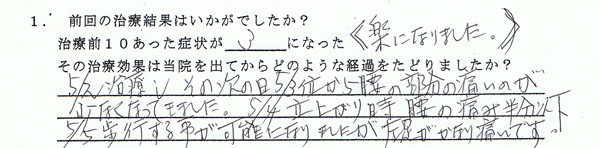 1. 前回の治療結果はいかがでしたか?
治療前10あった症状が 3 になった 《楽になりました。》
その治療効果は当院を出てからどのような経過をたどりましたか?
5/2治療し その次の日5/3位から腰の部分の痛いのが
少なくなってきました。5/4 立上がり時 腰の痛み半分以下
5/5歩行する事が可能になりましたが左足がかなり痛いです。